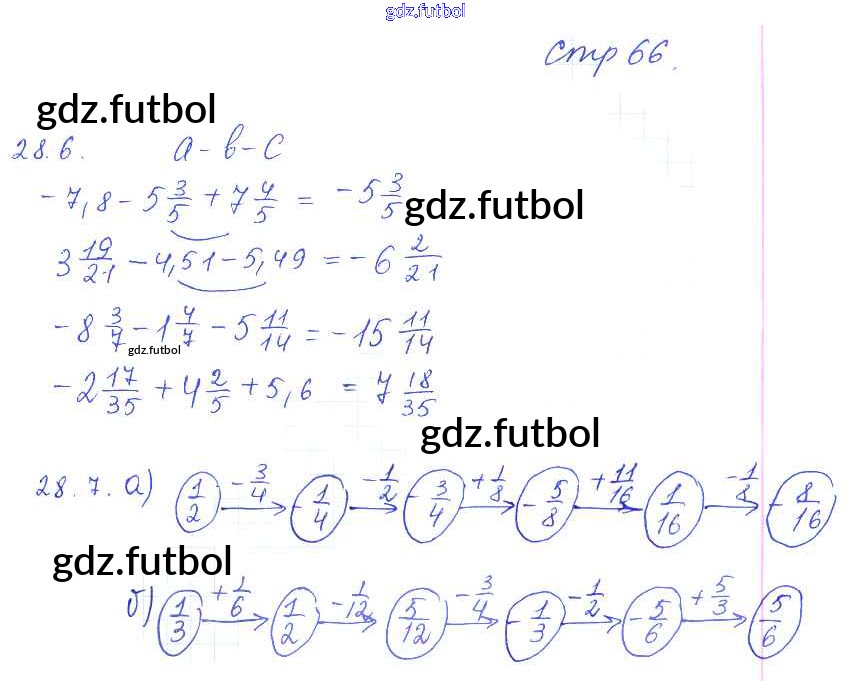 gdz.futbol
Стр 66.
gdz.futbol
28.6. a - b - c
- 7,8 - 5 3/5 + 7 4/5 = - 5 3/5
gdz.futbol
3 19/21 - 4,51 - 5,49 = - 6 2/21
- 8 3/7 - 1 4/7 - 5 11/14 = - 15 11/14
gdz.futbol
- 2 17/35 + 4 2/5 + 5,6 = 7 18/35
gdz.futbol
28.7. а) 1/2 - 3/4 → - 1/4 - 1/2 → - 3/4 + 1/8 → - 5/8 + 11/16 → 1/16 - 1/8 → - 8/16
gdz.futbol
б) 1/3 + 1/6 → 1/2 - 1/12 → 5/12 - 3/4 → - 1/3 - 1/2 → - 5/6 + 5/3 → 5/6